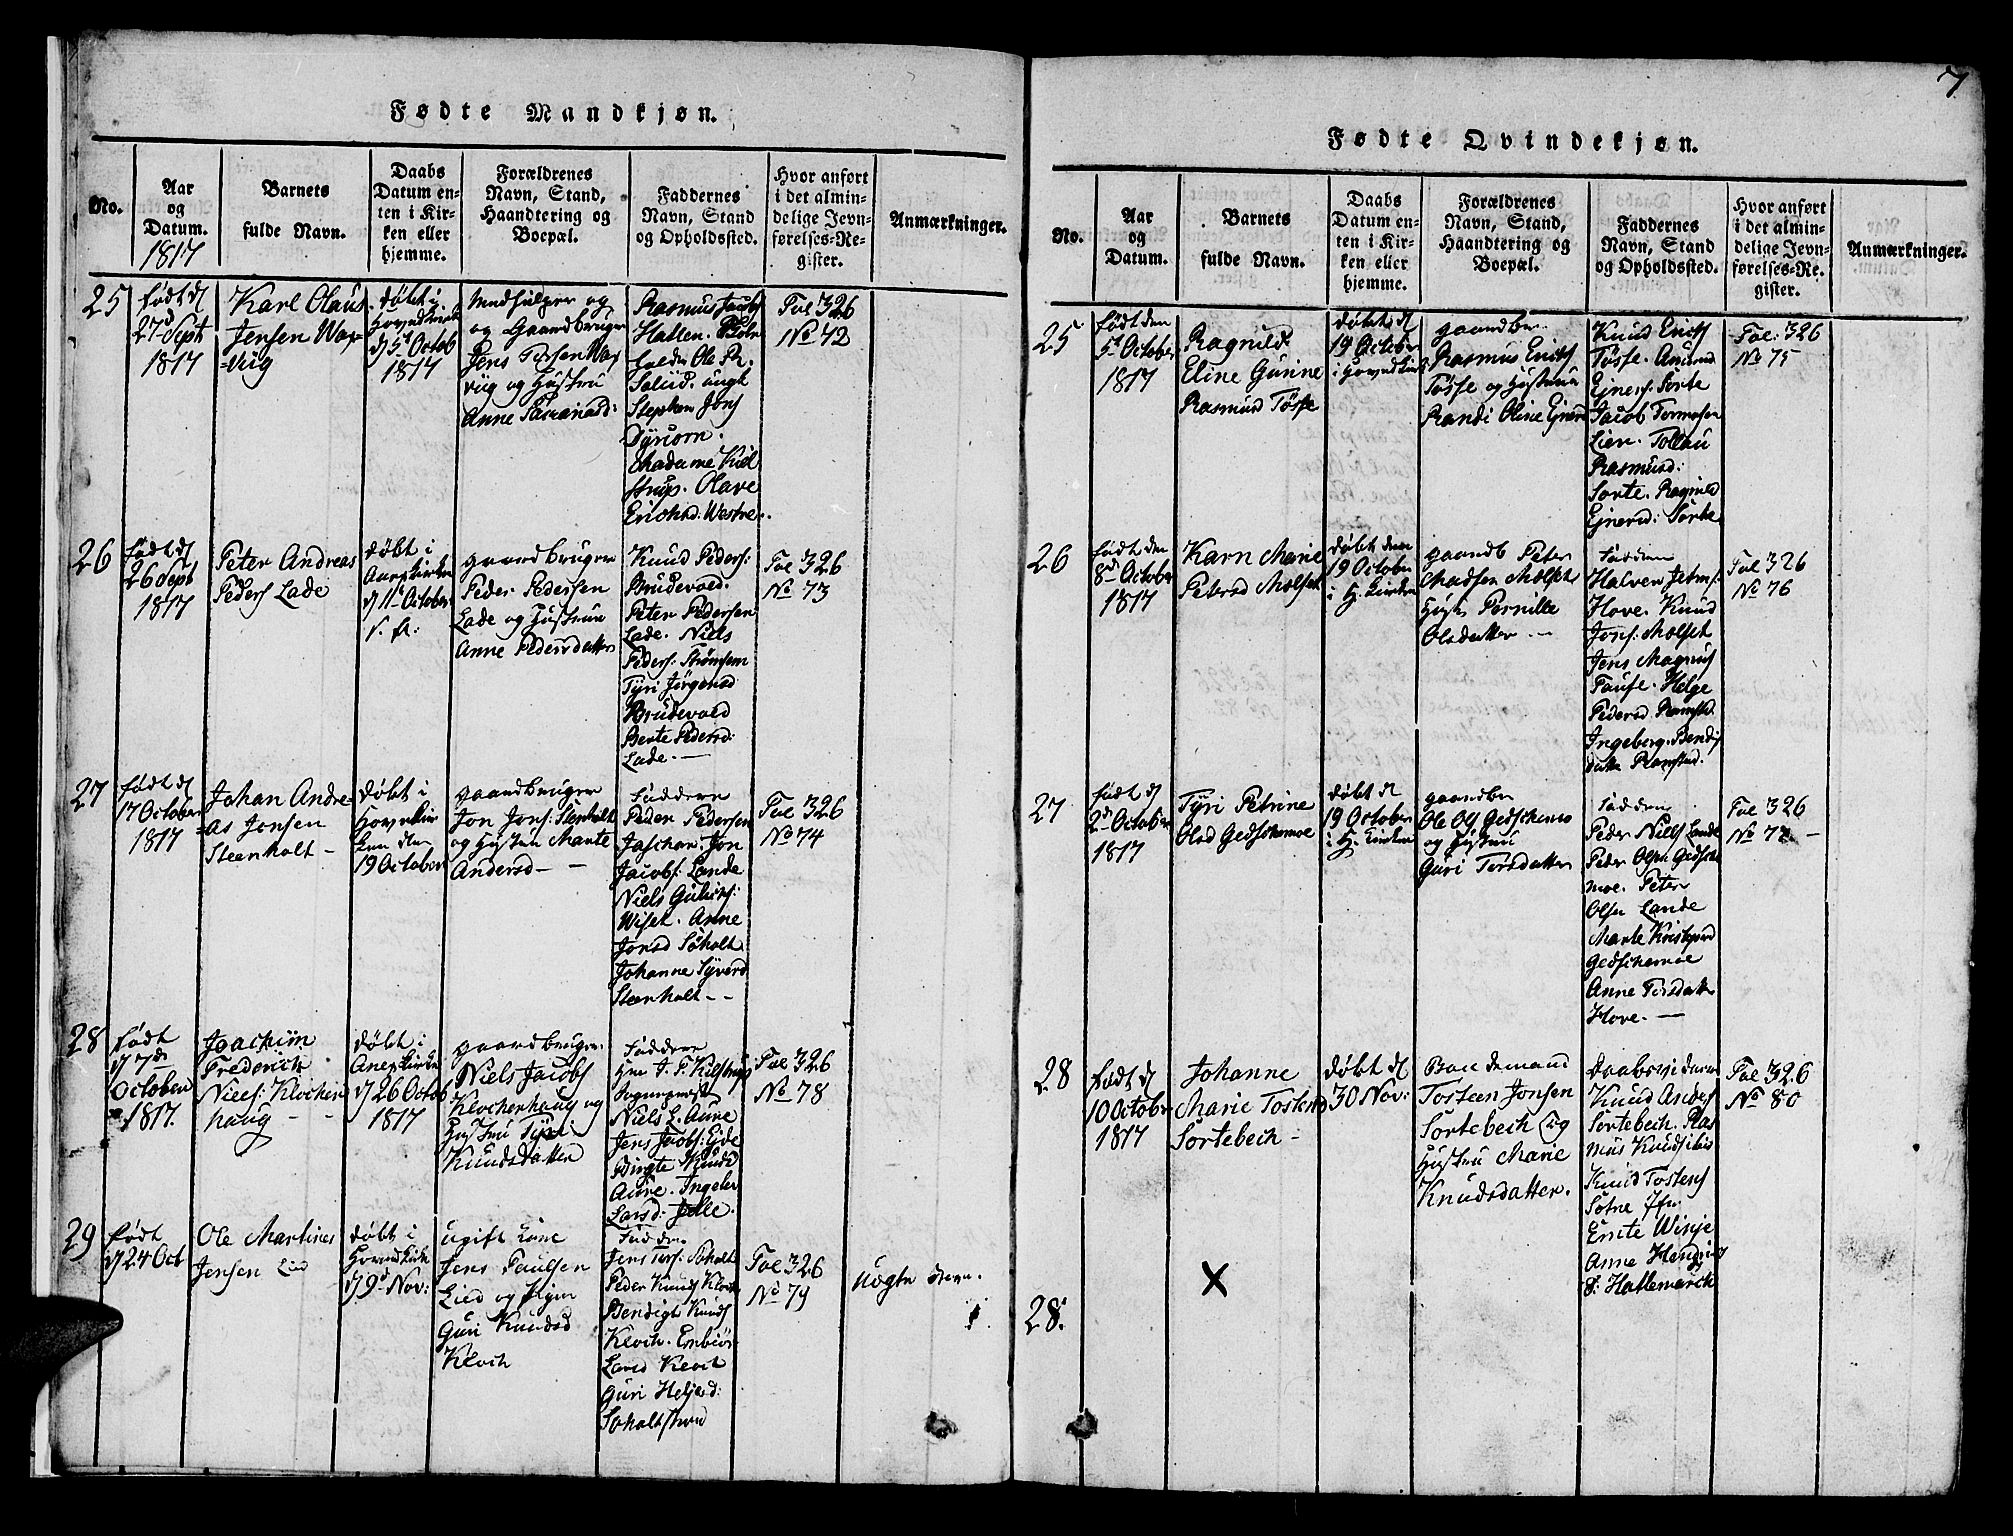 7
Fødte Mandkjøn.
No.
Aar
og
Datum.
1817
Barnets
fulde Navn.
Daabs
Datum en-
ten i Kir-
ken eller
hjemme.
Forældrenes
Navn, Stand,
Haandtering og
Boepæl.
Faddernes
Navn, Stand
og Opholdssted.
Hvor anført
i det almin-
delige Jevn-
førelses-Re-
gister.
Anmærkninger.
25
født d
27d Sept
1817
Karl Olaus
Jensen Wax-
=viig
døbt i
Hovedkirk
d 5t Octob
1817
Medhielper og
og Gaardbruger
Jens Wax
viig og Hustru
Anne
Rasmus Jacobs
Hatlen.
Ole R.
ungk
Stephen Jons
Dyrkorn.
Madame Kiel
strup. Olave
Erichsd: Westre
Fol 326
No 72
26
født d
26 Sept
1817
Peter Andreas
Peders Lade
døbt i
Kirken
d 11t October
gaardbruger
Peder Pedersen
Lade og Hustrue
Anne Pedersdatter
Knud Peders:
Brudevold.
Peter Pedersen
Lade. Niels
Peders: Strømhem
Tyri Jørgensd
Brudevold
Berte Pedersd:
Lade. —
Fol 326
No 73
27
født d
17 October
1817
Johan Andre-
=as Jonsen
Steenholt -
døbt i
Hovedkir
ken den
19 October
gaardbruger
Jon Jons: Stenholt
og Hustru Marite
Andersd — —
Faddere
Peder Pedersen
Jon
Jacobs: Lande
Niels
Wiset. Anne
Jonsd Søholt
Johanne Syversd
Steenholt - -
Fol 326
No 74
28
født
d 7de
October
1817.
Joachim
Frederich
Niels: Klocker
haug - -
døbt i
Kirken
d 26 Octob
1817
gaardbruger
Niels Jacobs
Klockerhaug og
Hustru Tyri
Knudsdatter
Faddere
Hrr J. F. Kielstrup
Sogneprest
Niels L. Aure
Jens Jacobs: Eide
Birgte Knuds
Aure. Ingeler
Larsd: Jelle.
Fol 326
No 78
29
født
d 24 Oct
Ole Martines
Jensen Lied
døbt i
Hovedkirk
d 9d Nov:
ugift Løne
Jens Paulsen
Lied og Pigen
Guri Knudsd
Klock
Faddere
Jens Tors: Søholt
Peder Knuds Klock
Bendigt Knuds
Klock. Embiør
Larsd Klock
Guri Heljesd:
Søholtstrand
Fol 326
No 79
Uægte
Fødte Qvindekjøn.
No.
Aar
og
Datum.
Barnets
fulde Navn.
Daabs
Datum en-
ten i Kir-
ken eller
hjemme.
Forældrenes
Navn, Stand,
Haandtering og
Boepæl.
Faddernes
Navn, Stand
og Opholdssted.
Hvor anført
i det almin-
delige Jevn-
førelses-Re-
gister.
Anmærkninger.
25
født den
5t October
1817
Ragnild
Eline Gurine
Rasmusd Tøsse
døbt d
19 October
i Hovedkirk
gaardbr
Rasmus Erichs
Tøsse og Hustrue
Randi Oline Ejnersd
Knud Erichs
Tøsse. Amund
Ejners: Sorte
Jacob Tormosen
Lien. Tollau
Rasmusd:
Sorte. Ragnild
Ejnersd: Sorte
Fol: 326
No 75
26
født den
8d October
1817
Karn Marie
Petersd Molset
døbt den
19 October
i H. Kirken
gaardb Peter
Madsen Molset
Hustr Pernille
Olsdatter —
Faddere
Halvor
Hove. Knud
Jons: Molset
Jens Magnus
Fause. Helge
Pedersd Ramstad
Ingeborg Bendis
datter Ramstad.
Fol 326
No 76
27
født d
2d October
1817
Tyri Petrine
Olsd Gedschemoe
døbt d
19 October
i H. Kirken
gaardbr
Ole Ols Gedschemo
og Hustrue
Guri Torsdatter
Faddere
Peder Niels Lande
Peder Olsen Gedsche
moe. Peter
Olsen Lande
Marte Kristophersd
Gedschemoe
Anne Torsdatter
Hove. —
Fol 326
No 77 -
28
født d
10 October
1817
Johanne
Marie Tostensd
Sortebech -
døbt d
30 Nov:
Boedemand
Tosteen Jonsen
Sortebech og
Hustru Marie
Knudsdatter.
Daabsvidner
Knud Anders
Sortebech. Ras
mus Knuds ibid
Knud Tostens
Sætre Jfr
Enite Wisje
Anne Hendrics
d: Hatlemarck
Fol 326
No 80
X
28.